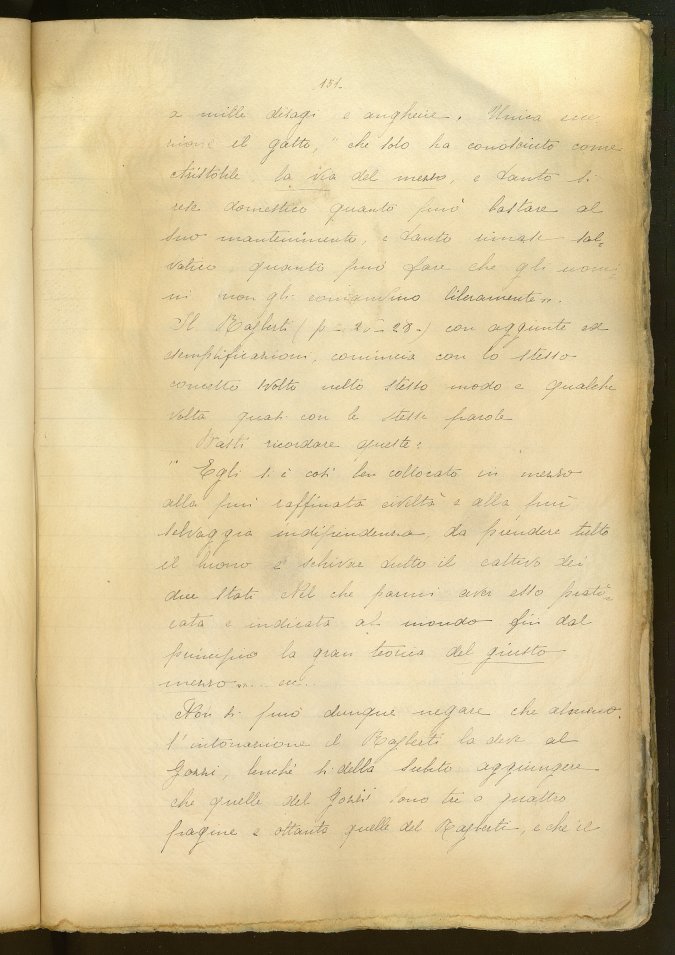 151.
a mille disagi e angherie. Unica ecce
zione il gatto, "che solo ha conosciuto come
Aristotele, la via del mezzo, e tanto si
rese domestico quanto può bastare al
suo mantenimento, e tanto rimase sal=
vatico, quanto può fare che gli uomi=
ni non gli comandino liberamente".
Il Rajberti (p - 28 -) con aggiunte ed
semplificazioni, comincia con lo stesso
concetto svolto nello stesso modo e qualche
volta quasi con le stesse parole
Basti ricordare queste:
"Egli si è così ben collocato in mezzo
alla più raffinata civiltà e alla più
selvaggia indipendenza, da prendere tutto
il buono e schivare tutto il cattivo dei
due stati. Nel che parmi aver esso prati=
cata e indicata al mondo fin dal
principio la gran teorica del giusto
mezzo".... ec..
Non si può dunque negare che almeno
l'intonazione il Rajberti la deve al
Gozzi, benchè si debba subito aggiungere
che quelle del Gozzi sono tre o quattro
pagine e ottanta quelle del Rajberti, e che il